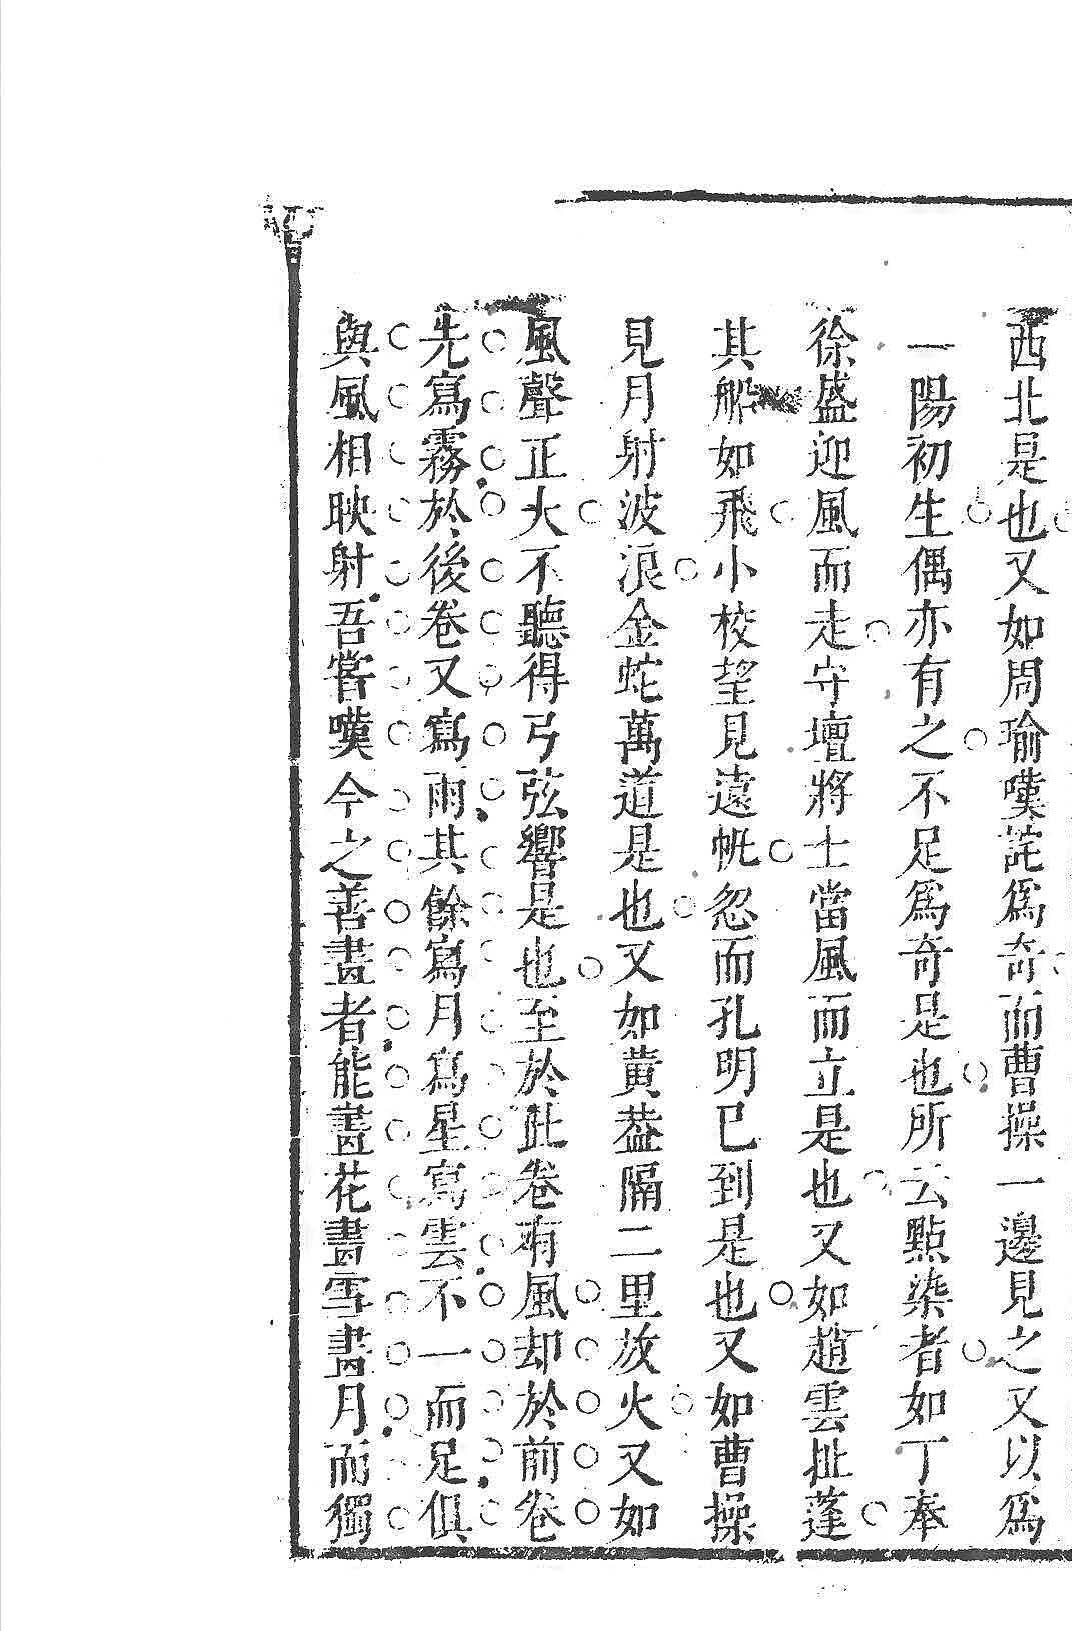 西北是也又如周瑜嘆詫爲奇而曹操一邊見之又以爲
一陽初生偶亦有之不足爲奇是也所云點染者如丁奉
徐盛迎風而走守壇將士當風而立是也又如趙雲扯蓬
其船如飛小校望見遠帆忽而孔明已到是也又如曹操
見月射波浪金蛇萬道是也又如黄葢隔二里放火又如
風聲正火不聽得弓弦響是也至於此卷有風却於前卷
先寫霧於後卷又寫雨其餘寫月寫星寫雲不一而足俱
與風相映射吾嘗嘆今之善畫者能畫花畫雪畫月而獨